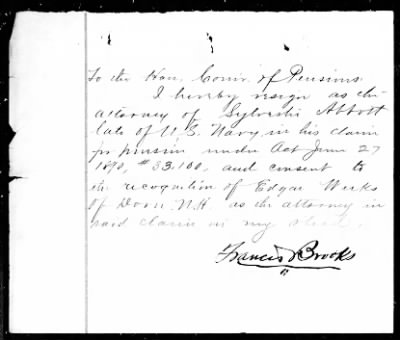 To the Hon. Comr. of Pensions
I hereby resign as the
attorney of Sylvester Abbott
late of U.S. Navy, in his claim
for pension under Act June 27
1890, #33.100, and consent to
the recognition of Edgar Weeks
of Dover N.H. as the attorney in
said claim in my stead.
Francis Brooks